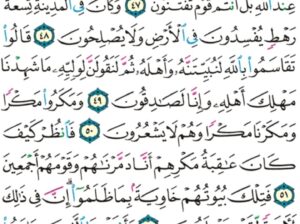 عِندَ ٱللَّهِ بَلْ أَنتُمْ قَوْمٌ تُفْتَنُونَ ٤٧ وَكَانَ فِى ٱلْمَدِينَةِ تِسْعَةُ
رَهْطٍ يُفْسِدُونَ فِى ٱلْأَرْضِ وَلَا يُصْلِحُونَ ٤٨ قَالُوا۟
تَقَاسَمُوا۟ بِٱللَّهِ لَنُبَيِّتَنَّهُۥ وَأَهْلَهُۥ ثُمَّ لَنَقُولَنَّ لِوَلِيِّهِۦ مَا شَهِدْنَا
مَهْلِكَ أَهْلِهِۦ وَإِنَّا لَصَٰدِقُونَ ٤٩ وَمَكَرُوا۟ مَكْرًا
وَمَكَرْنَا مَكْرًا وَهُمْ لَا يَشْعُرُونَ ٥٠ فَٱنظُرْ كَيْفَ
كَانَ عَٰقِبَةُ مَكْرِهِمْ أَنَّا دَمَّرْنَٰهُمْ وَقَوْمَهُمْ أَجْمَعِينَ
٥١ فَتِلْكَ بُيُوتُهُمْ خَاوِيَةًۢ بِمَا ظَلَمُوٓا۟ إِنَّ فِى ذَٰلِكَ